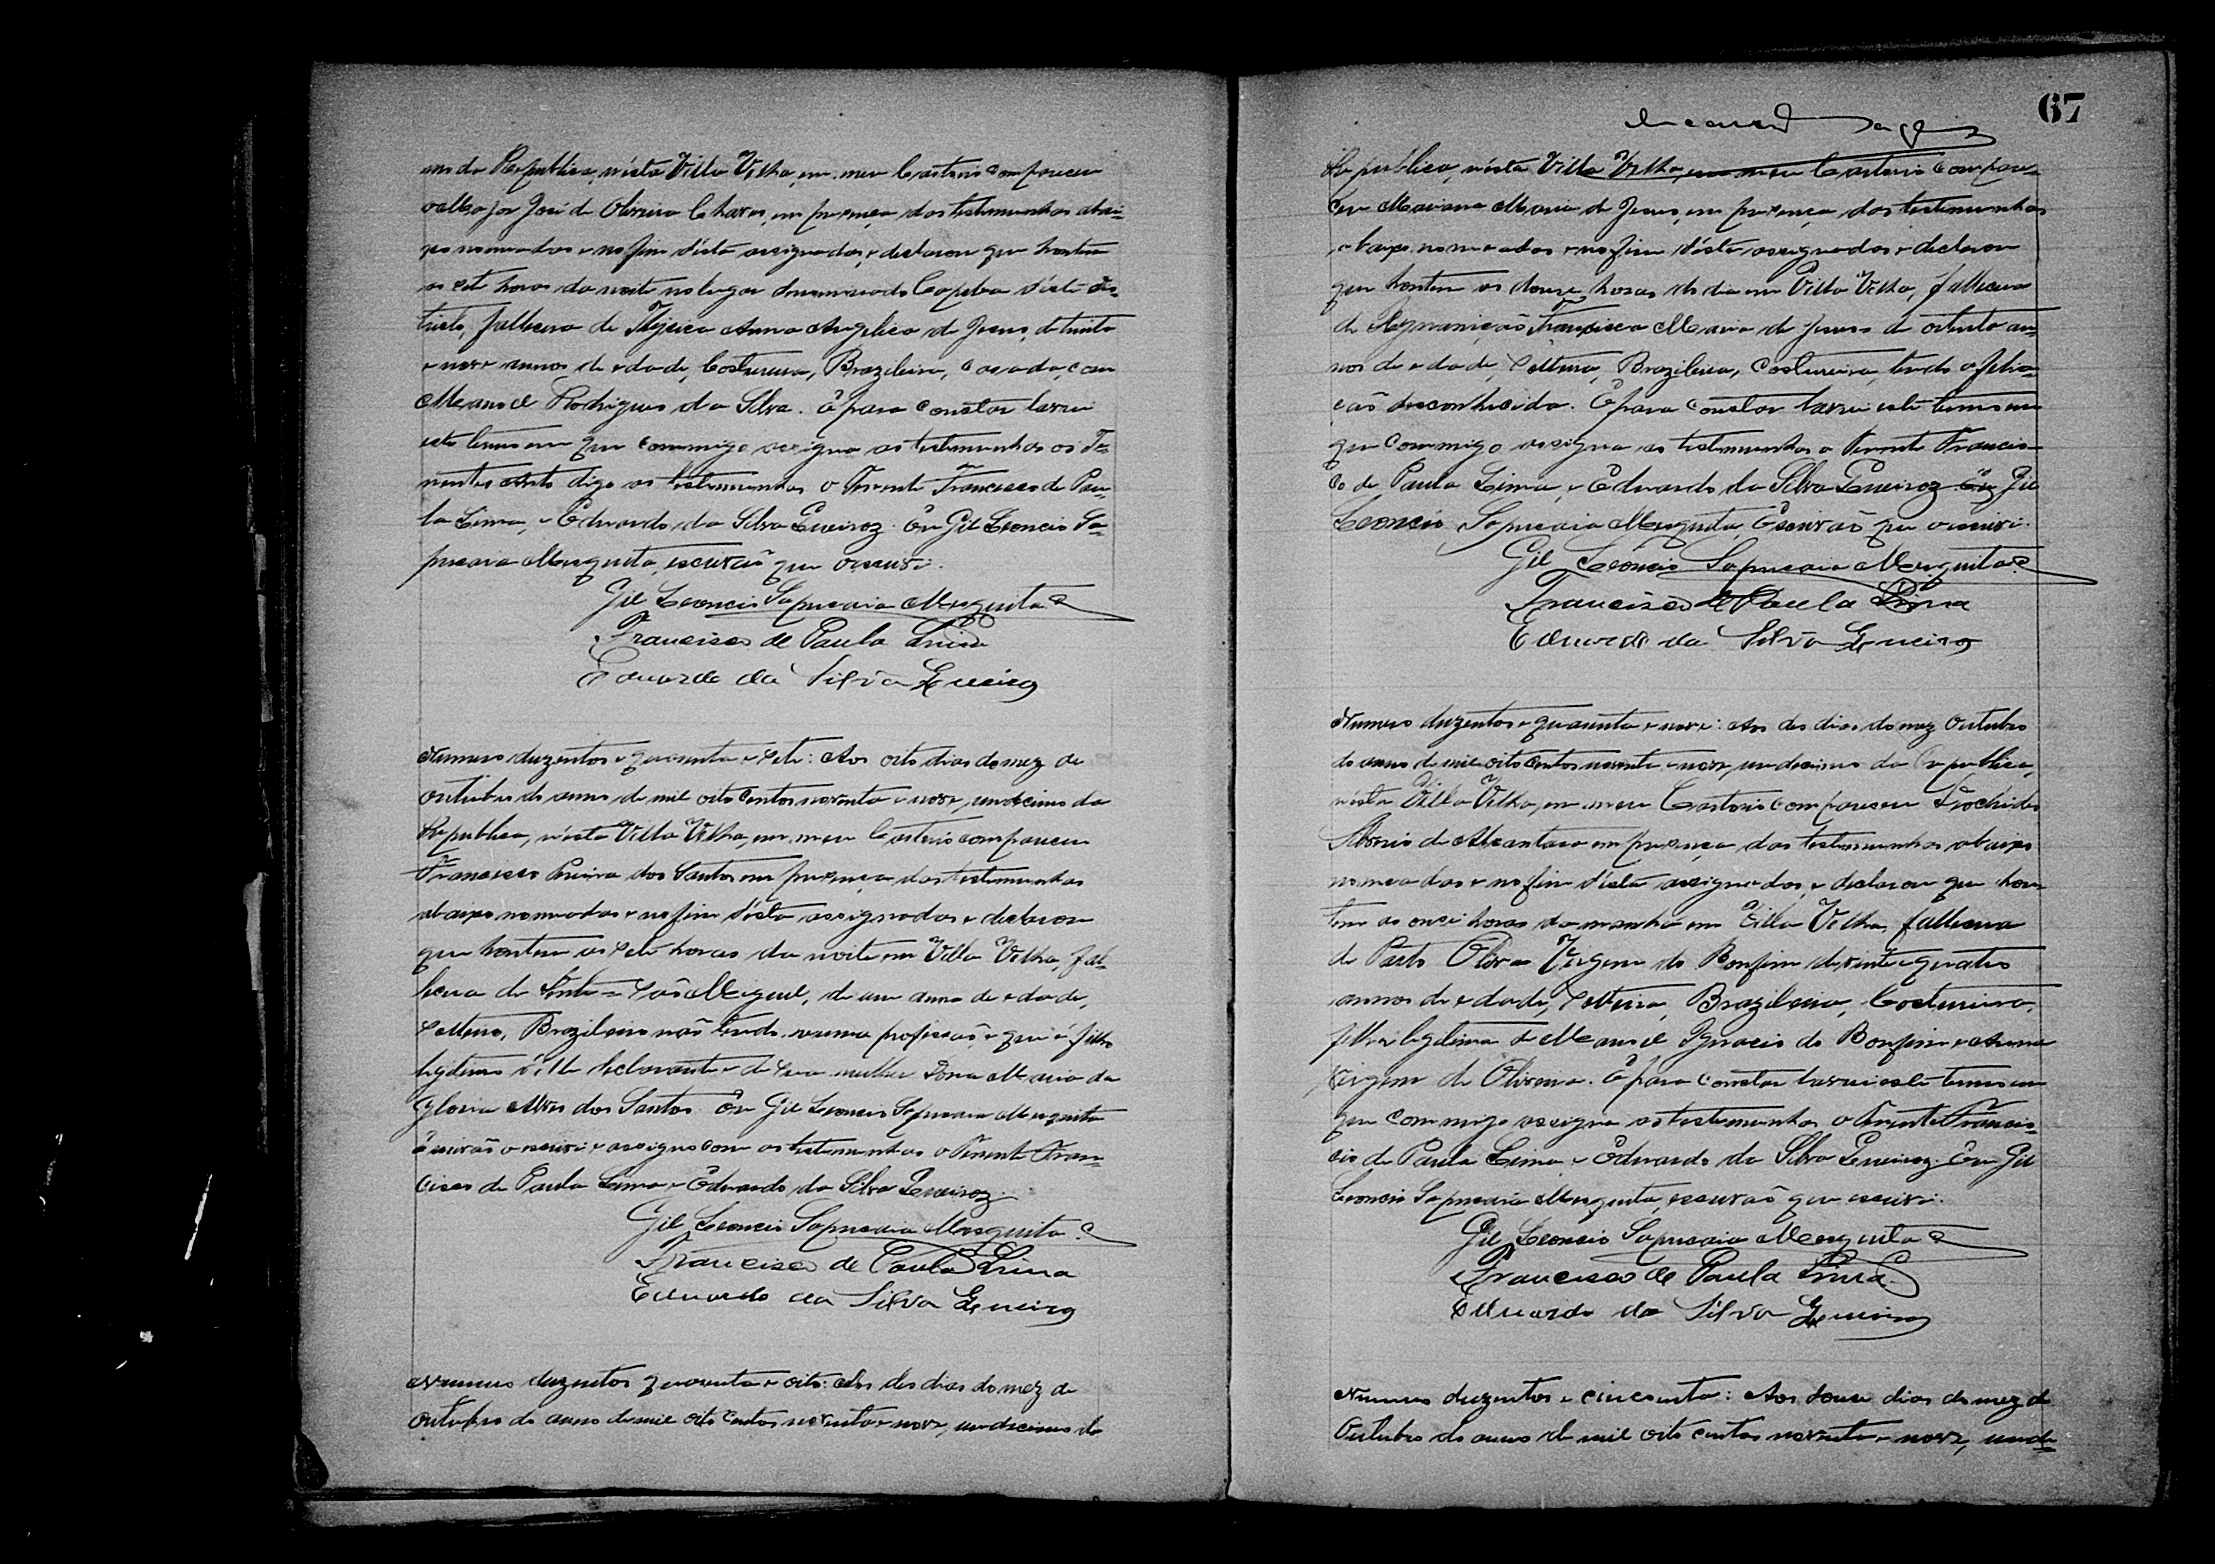 mo da Republica, n'esta Villa Velha, em meu Cartorio compareceu
José de Oliveira Chaves, em presença das testemunhas abai-
xo nomeadas e no fim d'esta assignadas, e declarou que hontem
as sete horas da noite no lugar denominado Copeba d'este dis-
tricto, fallecera de Thysica Anna Angelica de Jesus, de trinta
e nove annos de edade, Costureira, Brazileira, casada, com
Manoel Rodrigues da Silva. E para constar lavrei
este termo em que commigo assigna as testemunhas os Te-
nentes digo as testemunhas o Tenente Francisco de Pau-
la Lima, e Eduardo da Silva Queiroz. Eu Gil Leoncio Sa-
pucaia Mesquita, escrivão que o escrevi.
Gil Leoncio Sapucaia Mesquita
Francisco de Paula Lima
Eduardo da Silva Queiroz
Numero duzentos e quarenta e sete: Aos oito dias do mez de
Outubro do anno de mil oito centos noventa e nove, undecimo da
Republica, n'esta Villa Velha, em meu Cartorio compareceu
Francisco Pereira dos Santos em presença das testemunhas
abaixo nomeadas e no fim d'esta assignadas e declarou
que hontem as sete horas da noite em Villa Velha, fal-
lecera de Miguel, de um anno de edade,
solteiro, Brazileiro não tendo nenhuma profissão e que é filho
legitimo d'elle declarante e de sua mulher Dona Maria da
Gloria Alves dos Santos. Eu Gil Leoncio Sapucaia Mesquita
Escrivão o escrevi e assigno com as testemunhas o Tenente Fran-
cisco de Paula Lima e Eduardo da Silva Queiroz.
Gil Leoncio Sapucaia Mesquita
Francisco de Paula Lima
Eduardo da Silva Queiroz
Numero duzentos quarenta e oito: Aos des dias do mez de
Outubro do anno de mil oito centos noventa e nove, undecimo da
67
Republica, n'esta Villa Velha, em meu Cartorio compare-
ceu Mariana Maria de Jesus, em presença das testemunhas
abaixo nomeadas e no fim d'esta assignadas e declarou
que hontem as douse horas do dia em Villa Velha, fallecera
de Francisca Maria de Jesus de oitenta an-
nos de edade, solteira, Brazileira, Costureira, tendo a filia-
ção desconhecida. E para constar lavrei este termo em
que commigo assigna as testemunhas o Tenente Francis-
co de Paula Lima, e Eduardo da Silva Queiroz. Eu Gil
Leoncio Sapucaia Mesquita, Escrivão que o escrevi.
Gil Leoncio Sapucaia Mesquita
Francisco de Paula Lima
Eduardo da Silva Queiroz
Numero duzentos e quarenta e nove: Aos des dias do mez Outubro
do anno de mil oito centos noventa e nove, undecimo da Republica,
n'esta Villa Velha, em meu Cartorio compareceu
de Alcantara em presença das testemunhas abaixo
nomeadas e no fim d'esta assignadas, e declarou que hon-
tem as onze horas da manhã em Villa Velha, fallecera
de Parto Virgem do Bomfim de vinte e quatro
annos de edade, solteira, Brazileira, Costureira,
filha legitima de Manoel Ignacio do Bomfim e Anna
Virgem de Oliveira. E para constar lavrei este termo em
que commigo assigna as testemunhas o Tenente Francis-
co de Paula Lima e Eduardo da Silva Queiroz. Eu Gil
Leoncio Sapucaia Mesquita, escrivão que escrevi.
Gil Leoncio Sapucaia Mesquita
Francisco de Paula Lima
Eduardo da Silva Queiroz
Numero duzentos e cincoenta: Aos douse dias do mez de
Outubro do anno de mil oito centos noventa e nove, unde-